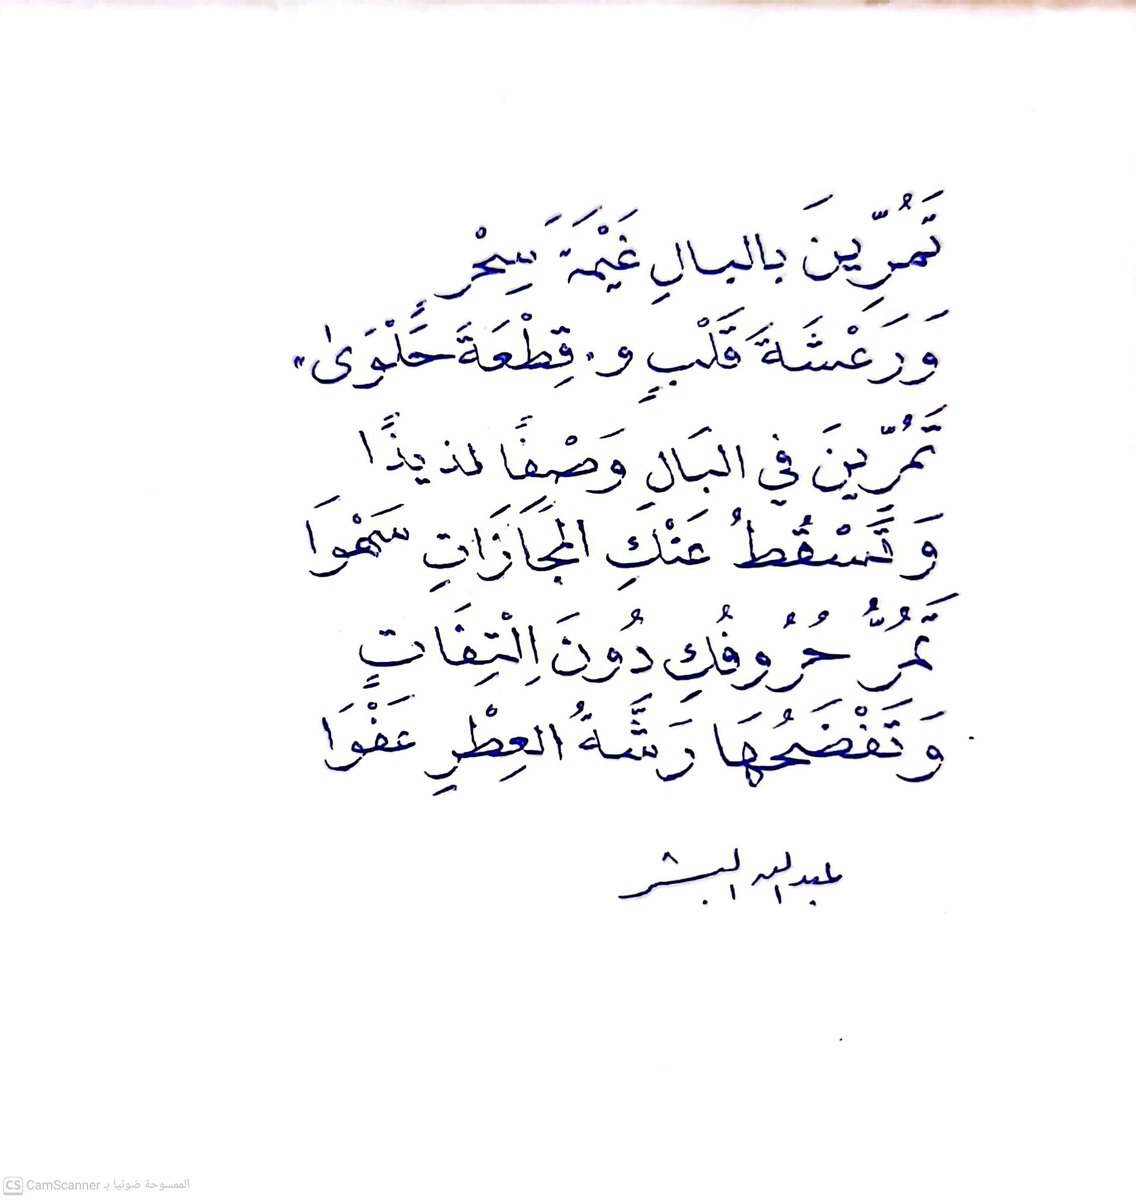 تَمُرِّينَ بالبالِ غَيْمَةَ سِحْرٍ
وَرَعْشَةَ قَلْبٍ و "قِطْعَةَ حَلْوَىٰ"
تَمُرّينَ في البَالِ وَصْفًا لذيذًا
وَتَسْقُطُ عَنْكِ المَجَازَاتِ سَهْوَا
تَمُرُّ حُرُوفُكِ دُونَ اِلْتِفَاتٍ
وَتَفْضَحُهَا رَشَّةُ العِطْرِ عَفْوَا
عبدالله البشر
CS CamScanner الممسوحة ضوئيا بـ